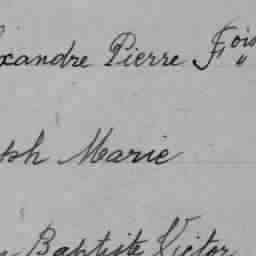 xandre Pierre Fois
ph Marie
Baptiste Victor